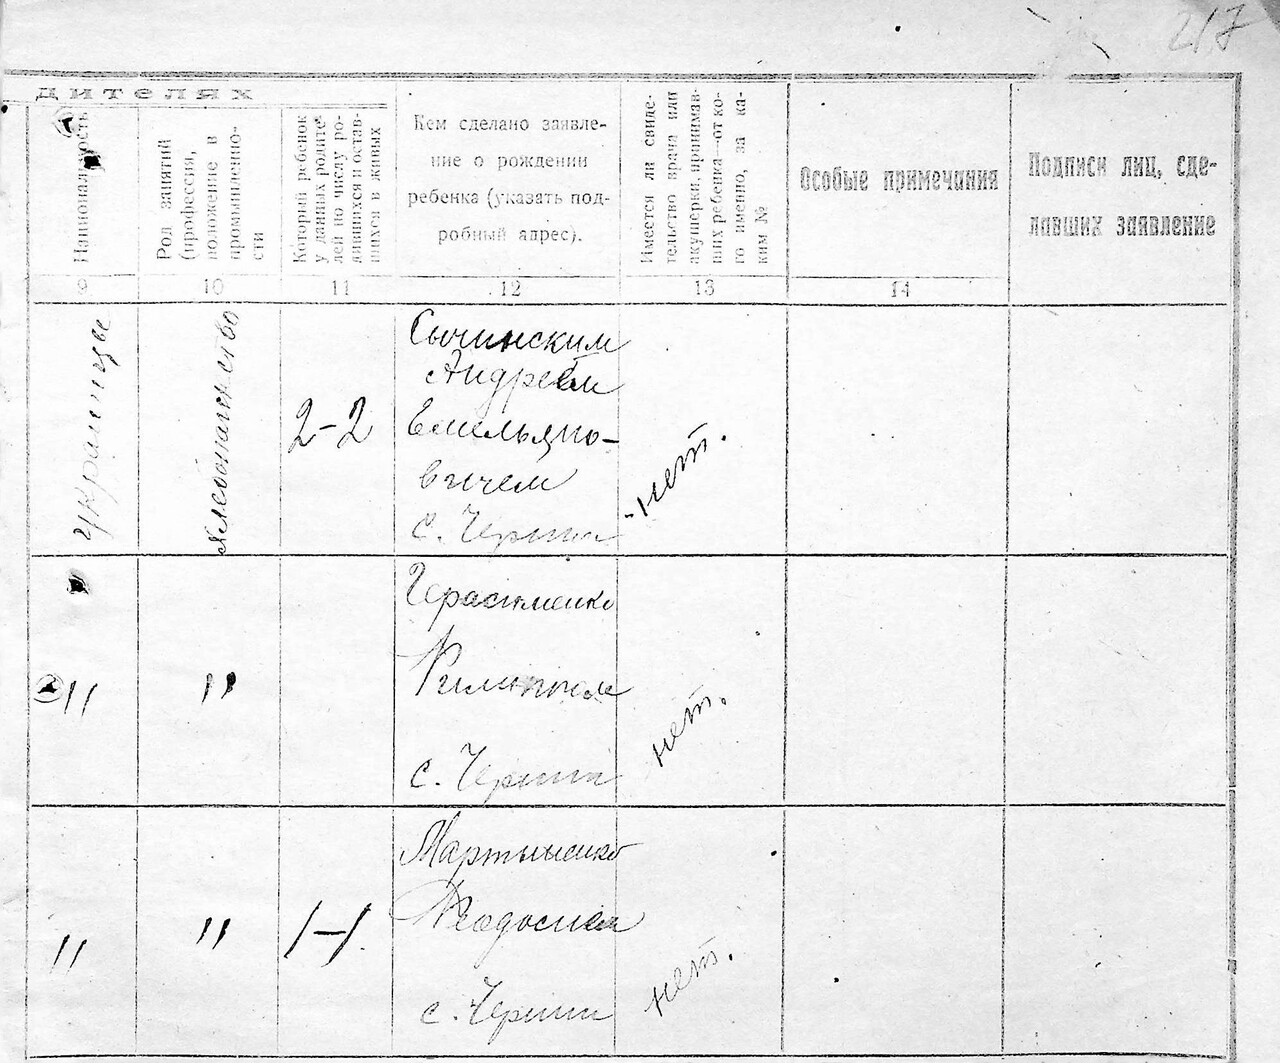 217
дителях
Национальность
Род занятий
(профессия,
положение в
промышленно-
сти
Который ребенок
у данных родите-
лей по числу ро-
дившихся и остав-
шихся в живых
Кем сделано заявле-
ние о рождении
ребенка (указать под-
робный адрес).
Имеется ли свиде-
тельство врача или
акушерки, принимав-
ших ребенка—от ко-
го именно, за ка-
ким №
Особые примечания
Подписи лиц, сде-
лавших заявление
9
10
11
12
13
14
Украинцы
хлебопашество
2-2
Сычинским
Андреем
Емельяно-
вичем
с. Черниш
нет.
"
"
Герасименко
Филиппом
с. Черниш
нет.
"
"
1-1
Мартыненко
Феодосием
с. Черниш
нет.